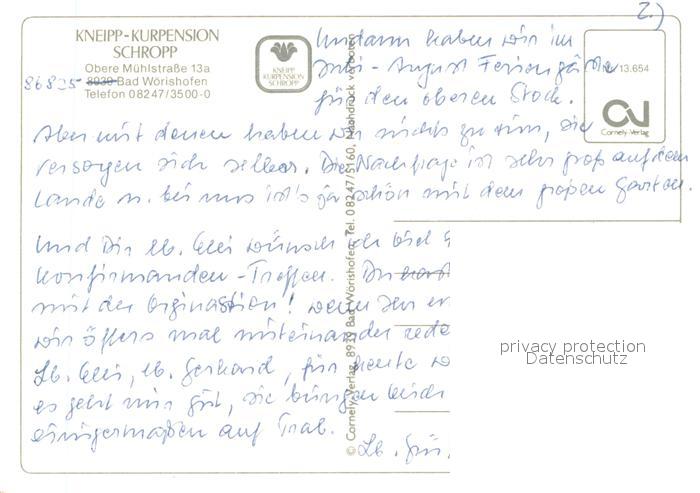 2.)
KNEIPP-KURPENSION
SCHROPP
Obere Mühlstraße 13a
86825 8939 Bad Wörishofen
Telefon 08247/3500-0
KNEIPP
KURPENSION
SCHROPP
Nr. 13.654
Cornely-Verlag
© Cornely-Verlag, 8939 Bad Wörishofen, Tel. 08247/5160, Nachdruck verboten
Und dann haben wir im
Juli - August Feriengäste
für den oberen Stock.
Aber mit denen haben wir nichts zu tun, die
versorgen sich selber. Die Nachfrage ist sehr groß auf dem
Lande u. bei uns ist's ja schön mit dem großen Garten.
Und Dir lb. wünsch ich viel
Konfirmanden-Treffen. Du
mit der Orginastion! wenn
wir öfters mal miteinander rede
Lb. lb. Gerhard, für heute
es geht mir gut, sie bringen
einigermaßen auf Trab.
Lb.
privacy protection
Datenschutz